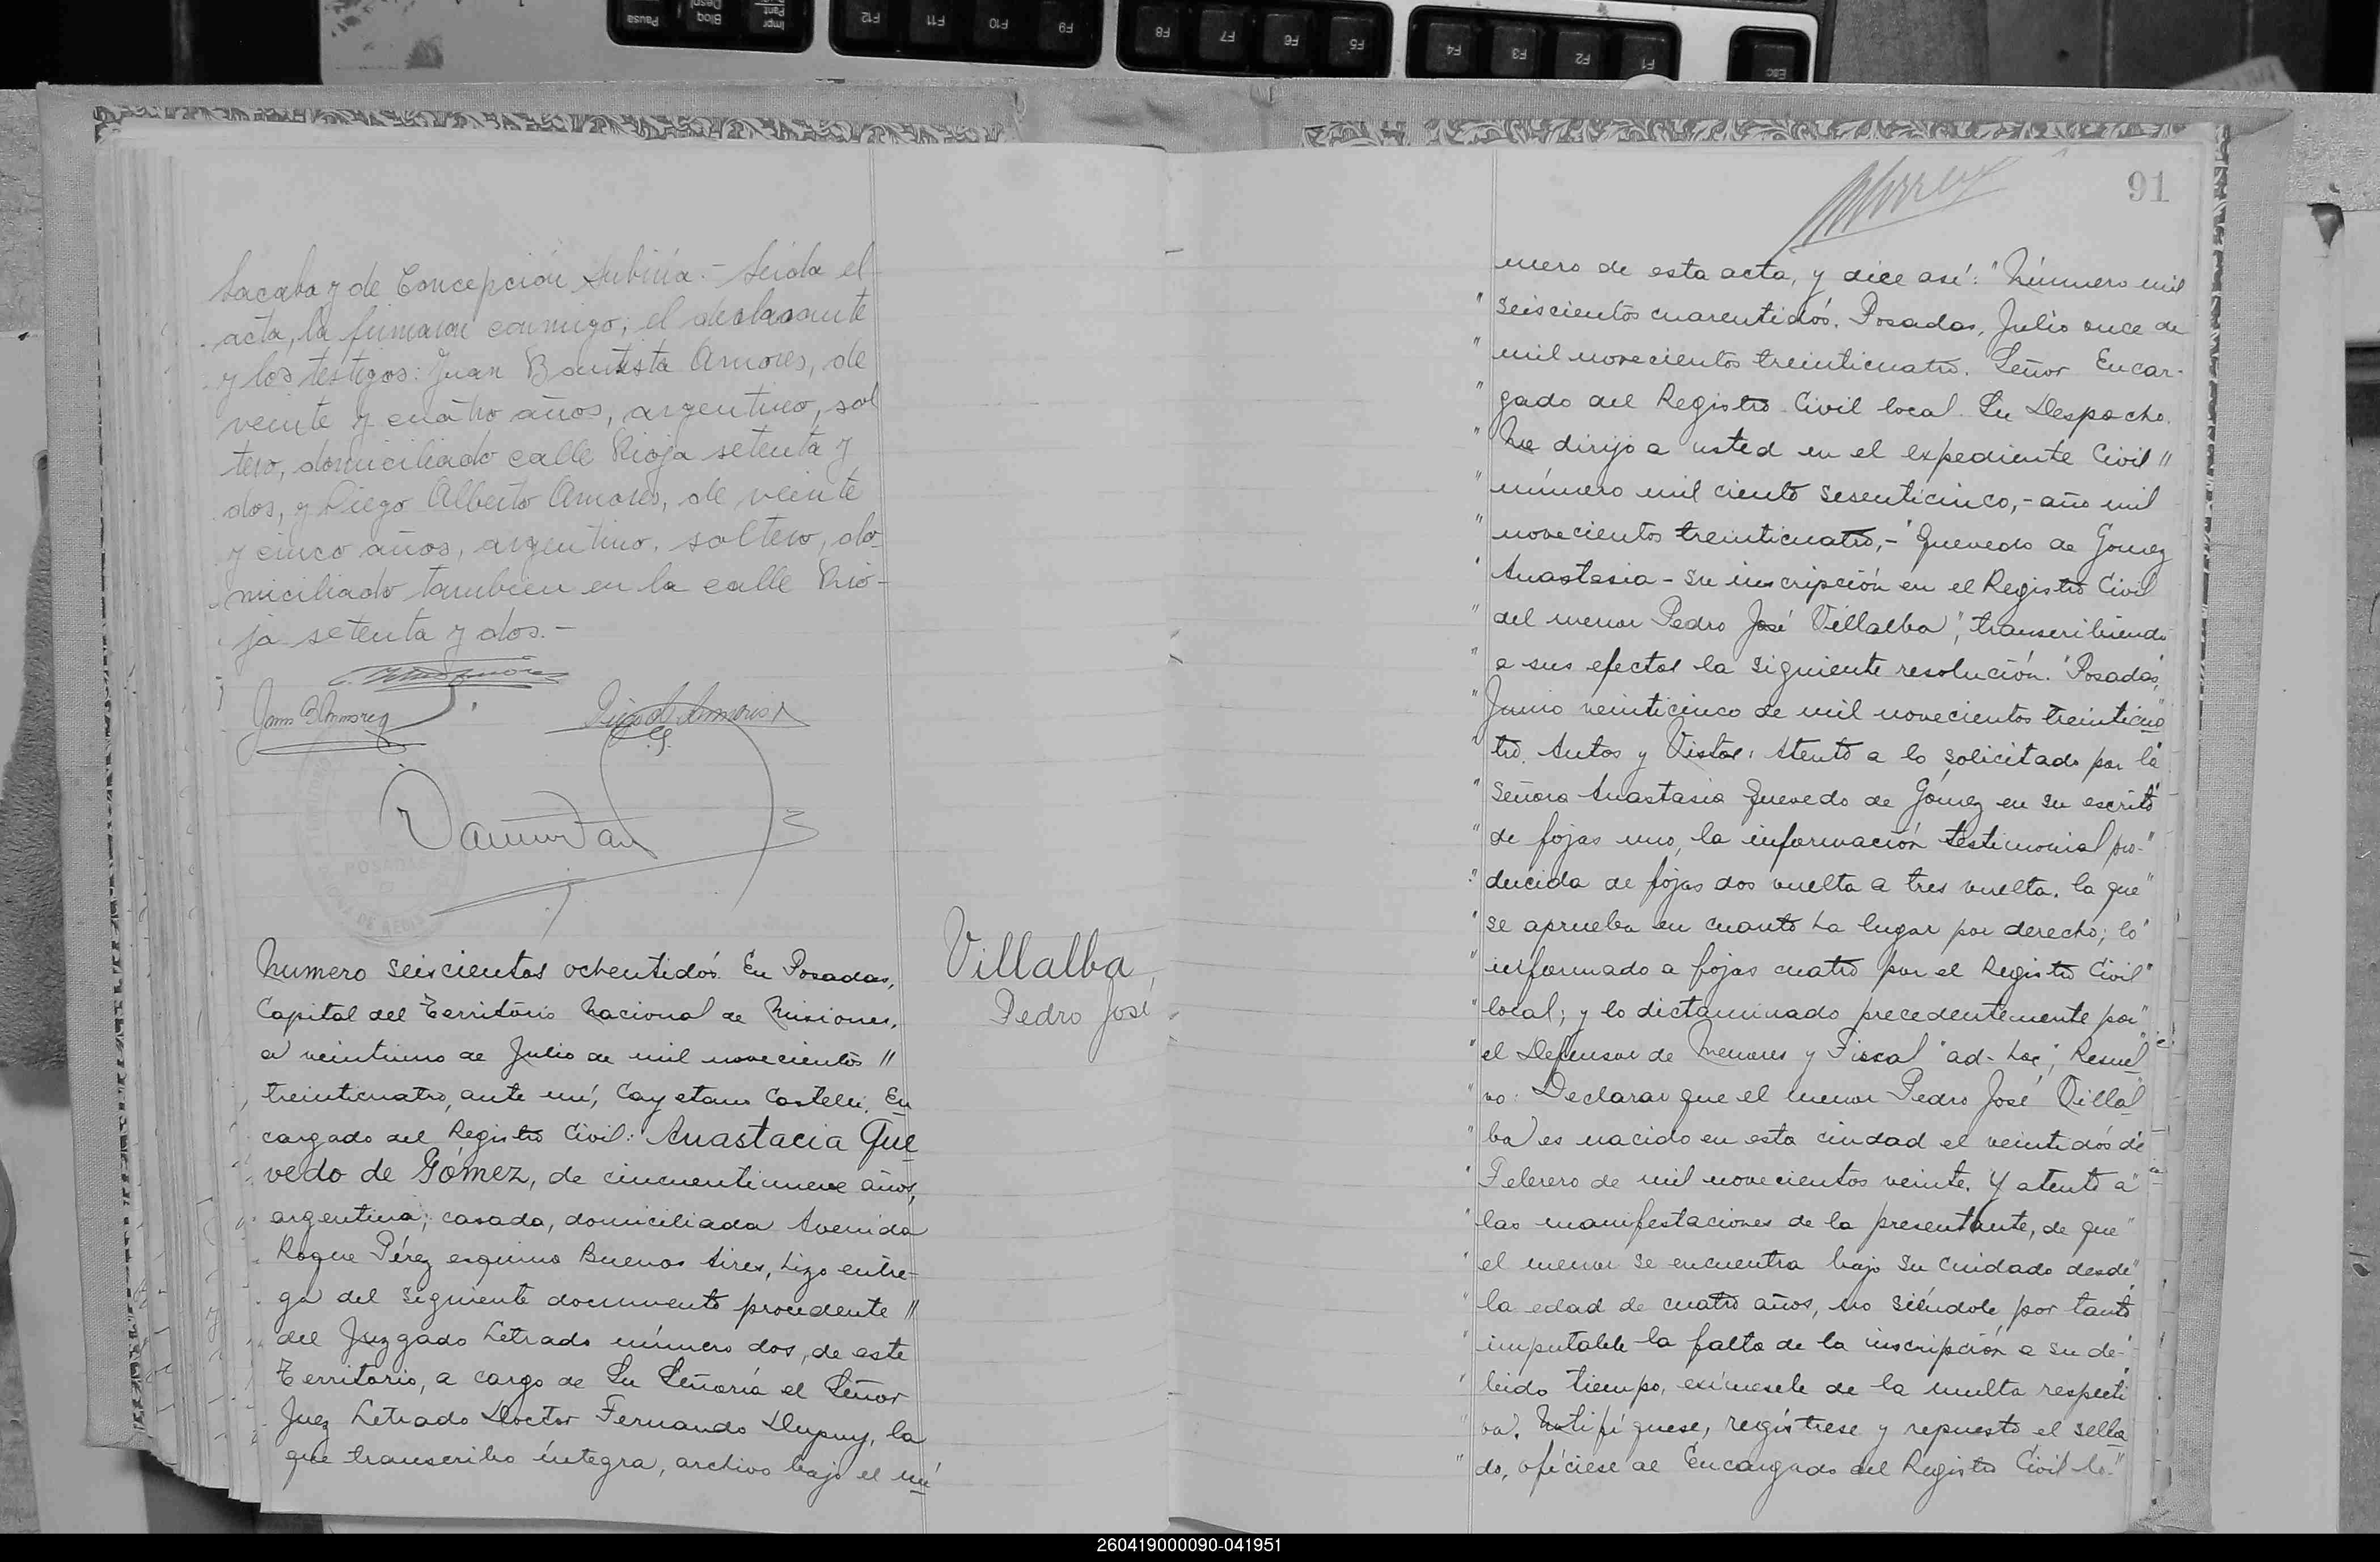 Sacaba y de Concepción Subiría.- Leída el
acta, la firmaron conmigo, el declarante
y los testigos: Juan Bautista Amores, de
veinte y cuatro años, argentino, sol
tero, domiciliado calle Rioja setenta y
dos, y Diego Alberto Amores, de veinte
y cinco años, argentino, soltero, do-
miciliado tambien en la calle Rio-
ja setenta y dos.-
Juan B Amores
Diego A. Amores
POSADAS
Numero seiscientos ochentidós. En Posadas,
Capital del Territorio Nacional de Misiones,
a veintiuno de Julio de mil novecientos //
treinticuatro, ante mí, Cayetano Castelli, En
cargado del Registro Civil: Anastacia Que
vedo de Gómez, de cincuentinueve años,
argentina, casada, domiciliada Avenida
Roque Pérez esquina Buenos Aires, hizo entre-
ga del siguiente documento procedente //
del Juzgado Letrado número dos, de este
Territorio, a cargo de Su Señoría el Señor
Juez Letrado Doctor Fernando Dupuy, la
que transcribo íntegra, archivo bajo el nú
Villalba
Pedro José
91
mero de esta acta, y dice así: "Número mil
" seiscientos cuarentidós. Posadas, Julio once de
" mil novecientos treinticuatro. Señor Encar-
" gado del Registro Civil local. Su Despacho.
" Me dirijo a usted en el expediente Civil //
" número mil ciento sesenticinco,- año mil
" novecientos treinticuatro,- "Quevedo de Gomez
" Anastasia - su inscripción en el Registro Civil
" del menor Pedro José Villalba", transcribiendo
" a sus efectos la siguiente resolución. "Posadas,
" Junio veinticinco de mil novecientos treinticua
" tro. Autos y Vistos: Atento a lo solicitado por la
" Señora Anastasia Quevedo de Gómez en su escrito
" de fojas uno, la información testimonial pro-"
" ducida de fojas dos vuelta a tres vuelta. la que"
" se aprueba en cuanto ha lugar por derecho; lo"
" informado a fojas cuatro por el Registro Civil"
" local; y lo dictaminado precedentemente por"
" el Defensor de Menores y Fiscal "ad-hoc", Resuel
" vo: Declarar que el menor Pedro José Villal
" ba es nacido en esta ciudad el veintidós de
" Febrero de mil novecientos veinte. Y atento a"
" las manifestaciones de la presentante, de que"
" el menor se encuentra bajo su cuidado desde"
" la edad de cuatro años, no siéndole, por tanto
" imputable la falta de la inscripción a su de-"
" bido tiempo, exímesele de la multa respecti
" va. Notifíquese, regístrese y repuesto el sella
" do, ofíciese al Encargado del Registro Civil lo-"
Esc
F1
F2
F3
F4
F5
F6
F7
F8
F9
F10
F11
F12
Impr Pant
Bloq Despl
Pausa
260419000090-041951